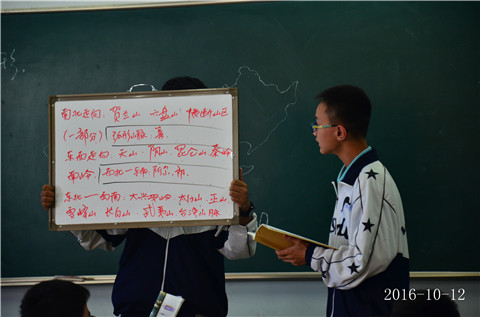 南北走向：贺兰山 六盘山 横断山区
(一部分) 弧形山脉：喜
东西走向：天山、阴山、昆仑山 秦岭
南岭，西北—东南：阿尔、祁
东北—西南：大兴安岭 太行山、巫山
雪峰山 长白山 武夷山、台湾山脉
2016-10-12